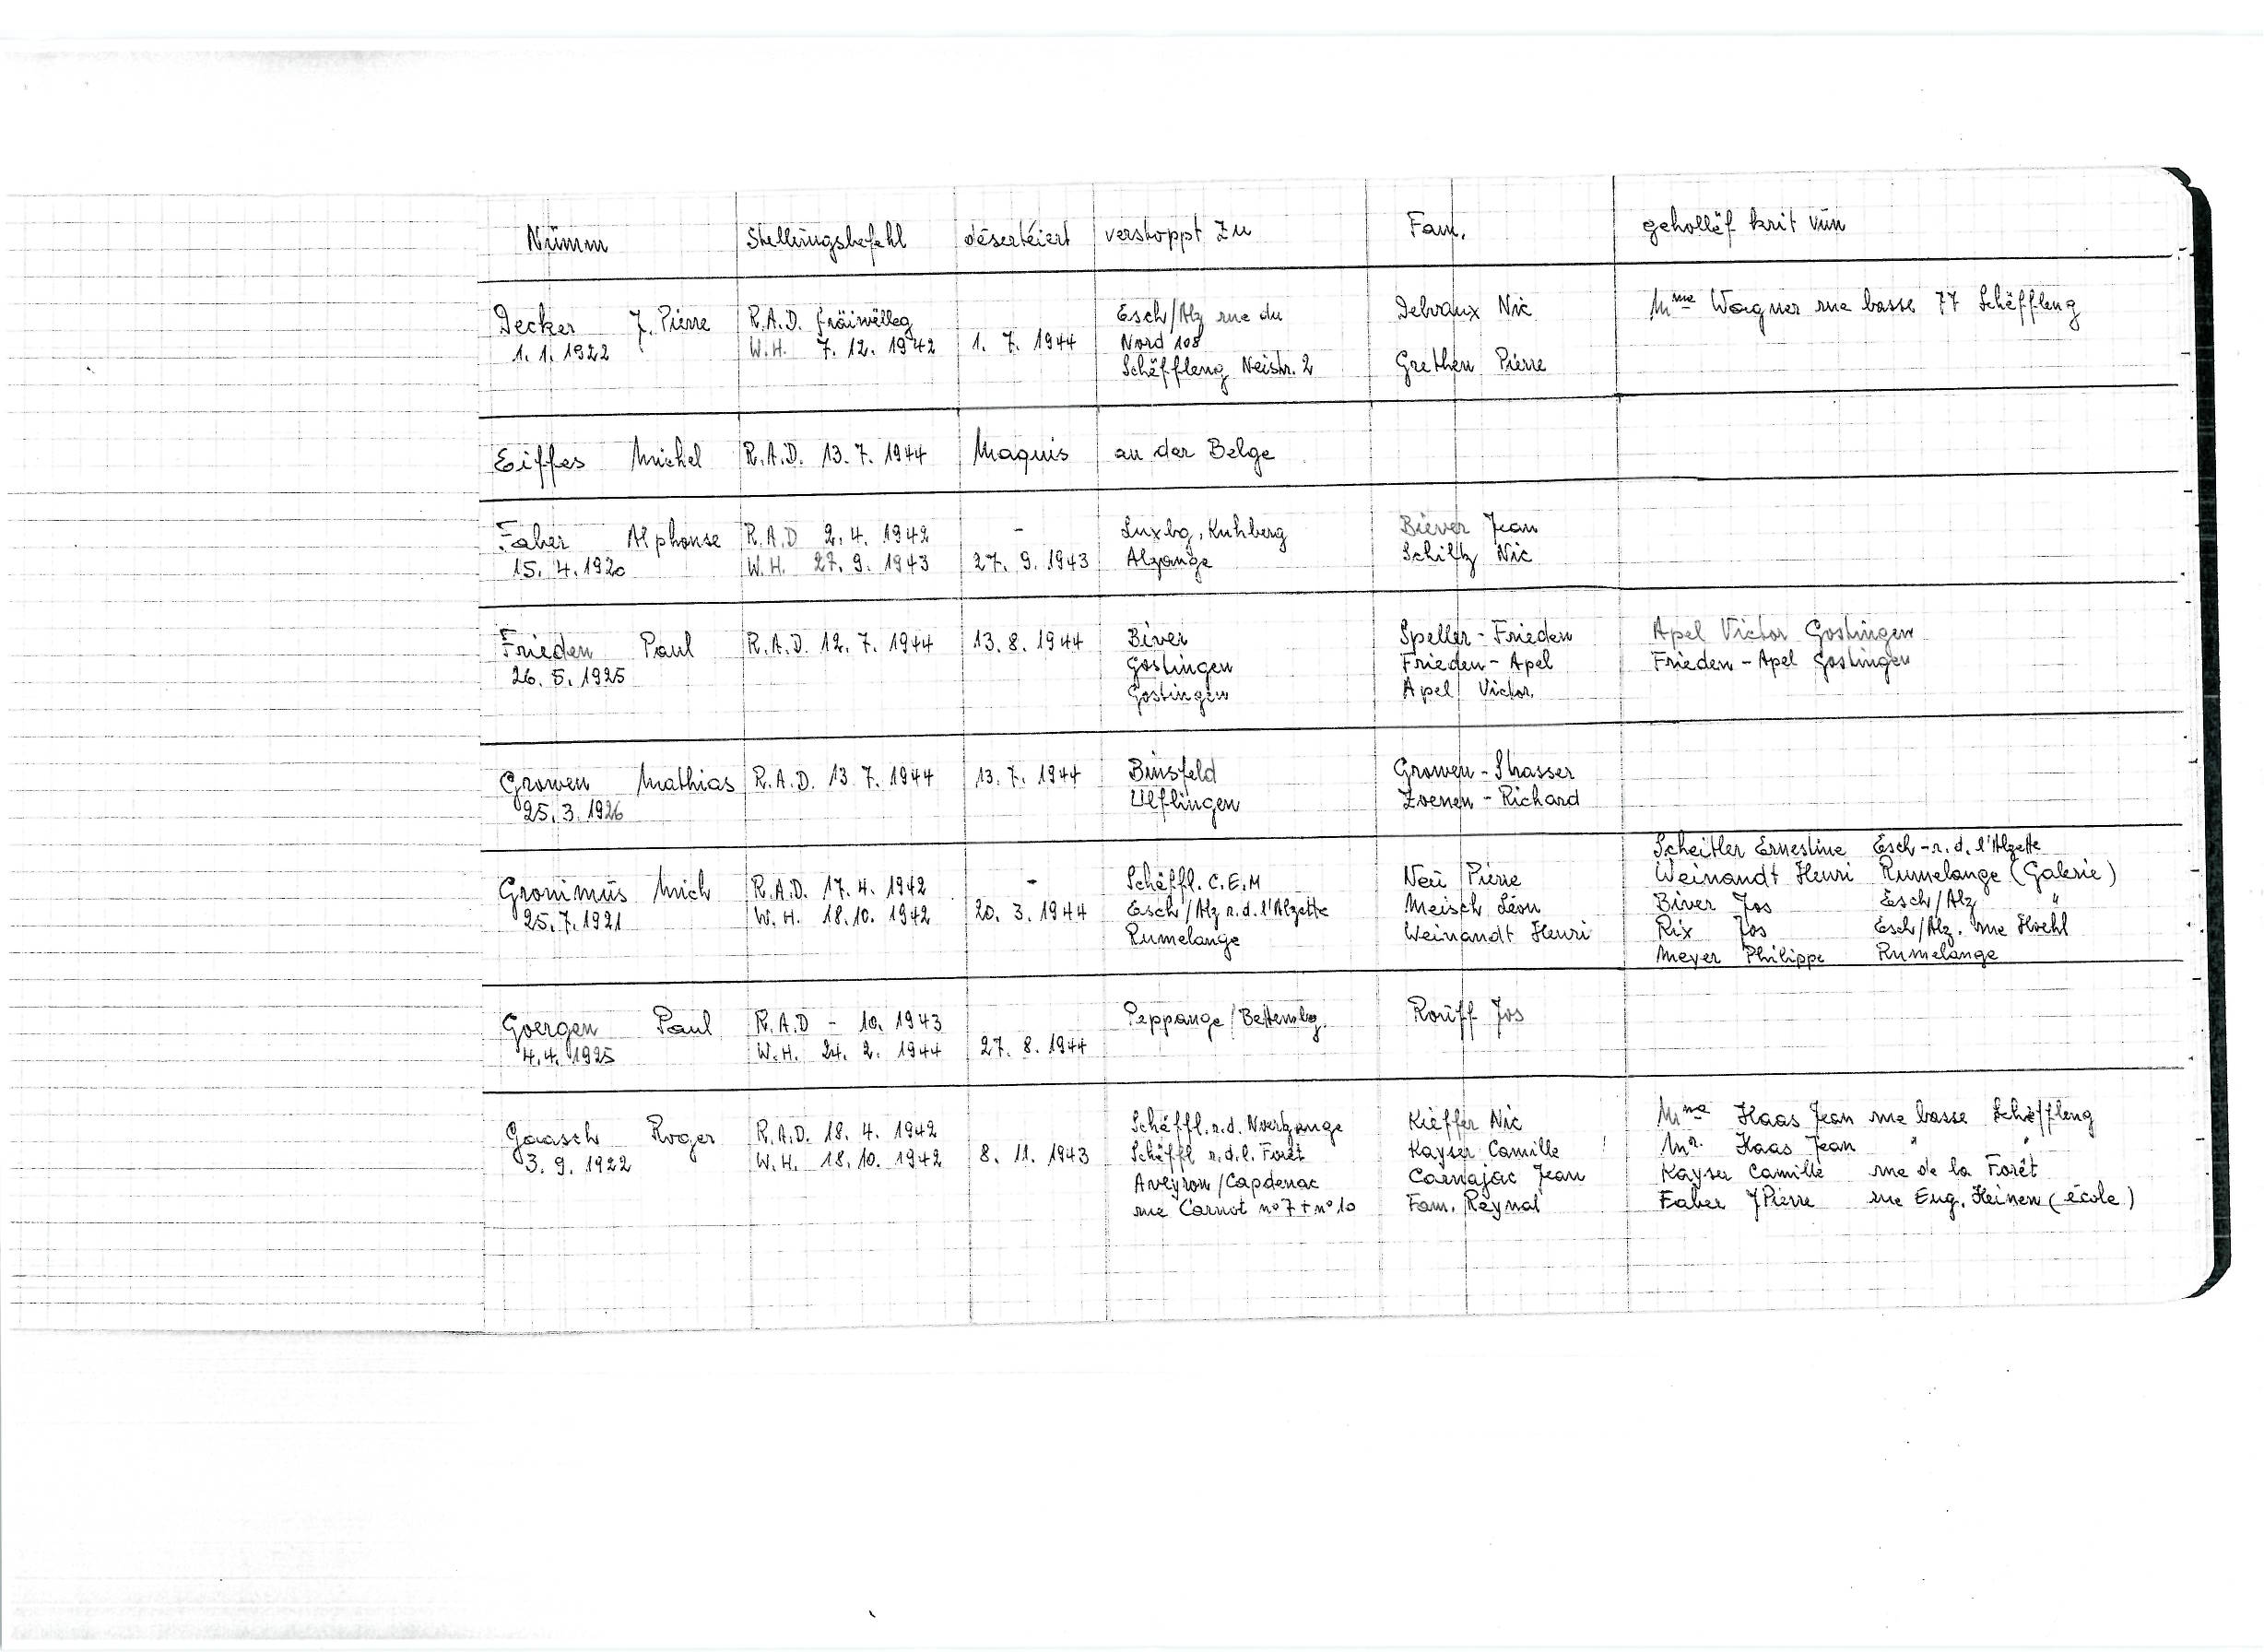 Nümm Stellüngsbefehl désertéiert verstoppt zu Fam. gehollëf krit vün
Decker J. Pierre R.A.D. fräiwëlleg Esch/Alz rue du Delvaux Nic Mme Wagner rue basse 77 Schëffleng
1.1.1922 W.H. 7.12.1942 1.7.1944 Nord 108
Schëffleng Neistr. 2 Grethen Pierre
Eiffes Michel R.A.D. 13.7.1944 Maquis an der Belge
Faber Alphonse R.A.D 2.4.1942 - Luxbg, Kuhberg Biever Jean
15.4.1920 W.H. 27.9.1943 27.9.1943 Alzange Schiltz Nic
Frieden Paul R.A.D. 12.7.1944 13.8.1944 Biver Speller-Frieden Apel Victor Gostingen
26.5.1925 Gostingen Frieden-Apel Frieden-Apel Gostingen
Gostingen Apel Victor.
Growen Mathias R.A.D. 13.7.1944 13.7.1944 Binsfeld Growen-Strasser
25.3.1926 Ulflingen Zoenen-Richard
Scheitler Ernestine Esch-r.d.l'Alzette
Gronimüs Mich R.A.D. 17.4.1942 - Schëffl. C.E.M Neü Pierre Weinandt Henri Rumelange (Galerie)
25.7.1921 W.H. 18.10.1942 20.3.1944 Esch/Alz r.d.l'Alzette Meisch Léon Biver Jos Esch/Alz "
Rumelange Weinandt Henri Rix Jos Esch/Alz. rue Hoehl
Meyer Philippe Rumelange
Goergen Paul R.A.D - 10.1943 Peppange/Bettembg. Roüff Jos
4.4.1925 W.H. 24.2.1944 27.8.1944
Gaasch Roger R.A.D. 18.4.1942 Schëffl.r.d. Noertzange Kieffer Nic Mme Haas Jean rue basse Schëffleng
3.9.1922 W.H. 18.10.1942 8.11.1943 Schëffl r.d.l. Forêt Kayser Camille Mr. Haas Jean " "
Aveyron/Capdenac Carnajac Jean Kayser Camille rue de la Forêt
rue Carnot no 7 + no 10 Fam. Reynal Faber JPierre rue Eug. Heinen (école)